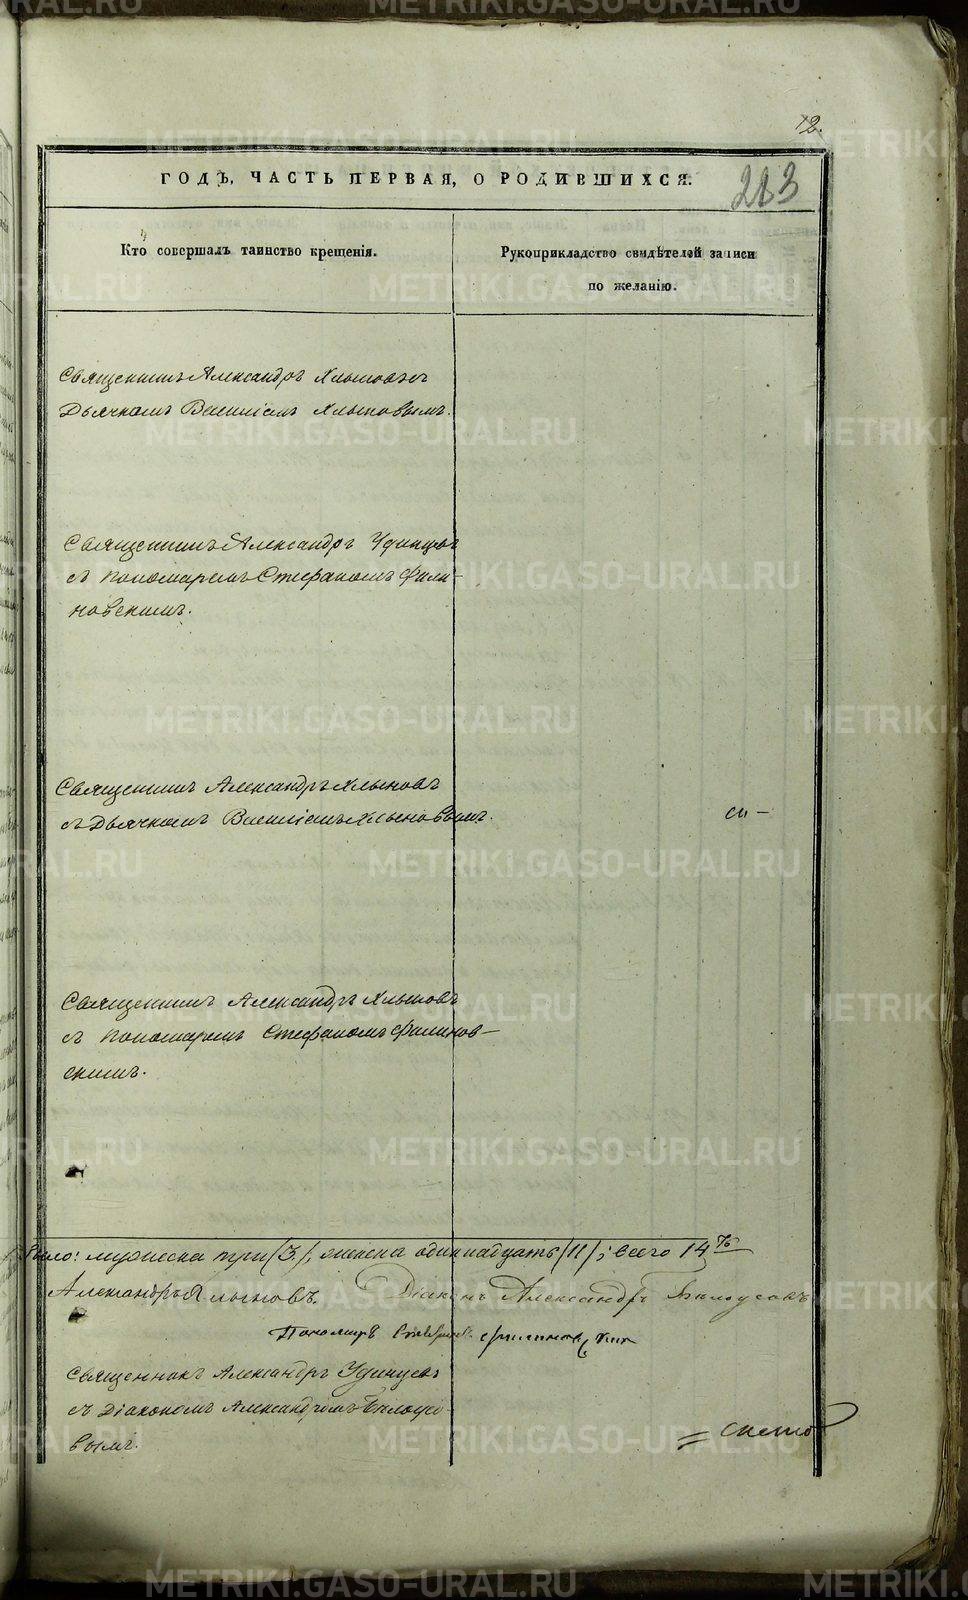 12.
283
ГОДЪ, ЧАСТЬ ПЕРВАЯ, О РОДИВШИХСЯ.
Кто совершалъ таинство крещенія.
Рукоприкладство свидѣтелей записи
по желанію.
Священникъ Александръ Хлыновъ съ
Дьячкомъ Василіемъ Хлыновымъ.
Священникъ Александръ Удинцевъ
съ пономаремъ Стефаномъ Фили-
новскимъ.
Священникъ Александръ Хлыновъ
съ Дьячкомъ Василіемъ Хлыновымъ.
Священникъ Александръ Хлыновъ
съ пономаремъ Стефаномъ Филинов-
скимъ.
было: мужеска три /3/, женска одиннадцать /11/; всего 14
Александръ Хлыновъ. Діаконъ Александръ Бѣлоусовъ
Пономарь Стефанъ Филиновскій
Священникъ Александръ Удинцевъ
съ Діакономъ Александромъ Бѣлоусо-
вымъ.
METRIKI.GASO-URAL.RU